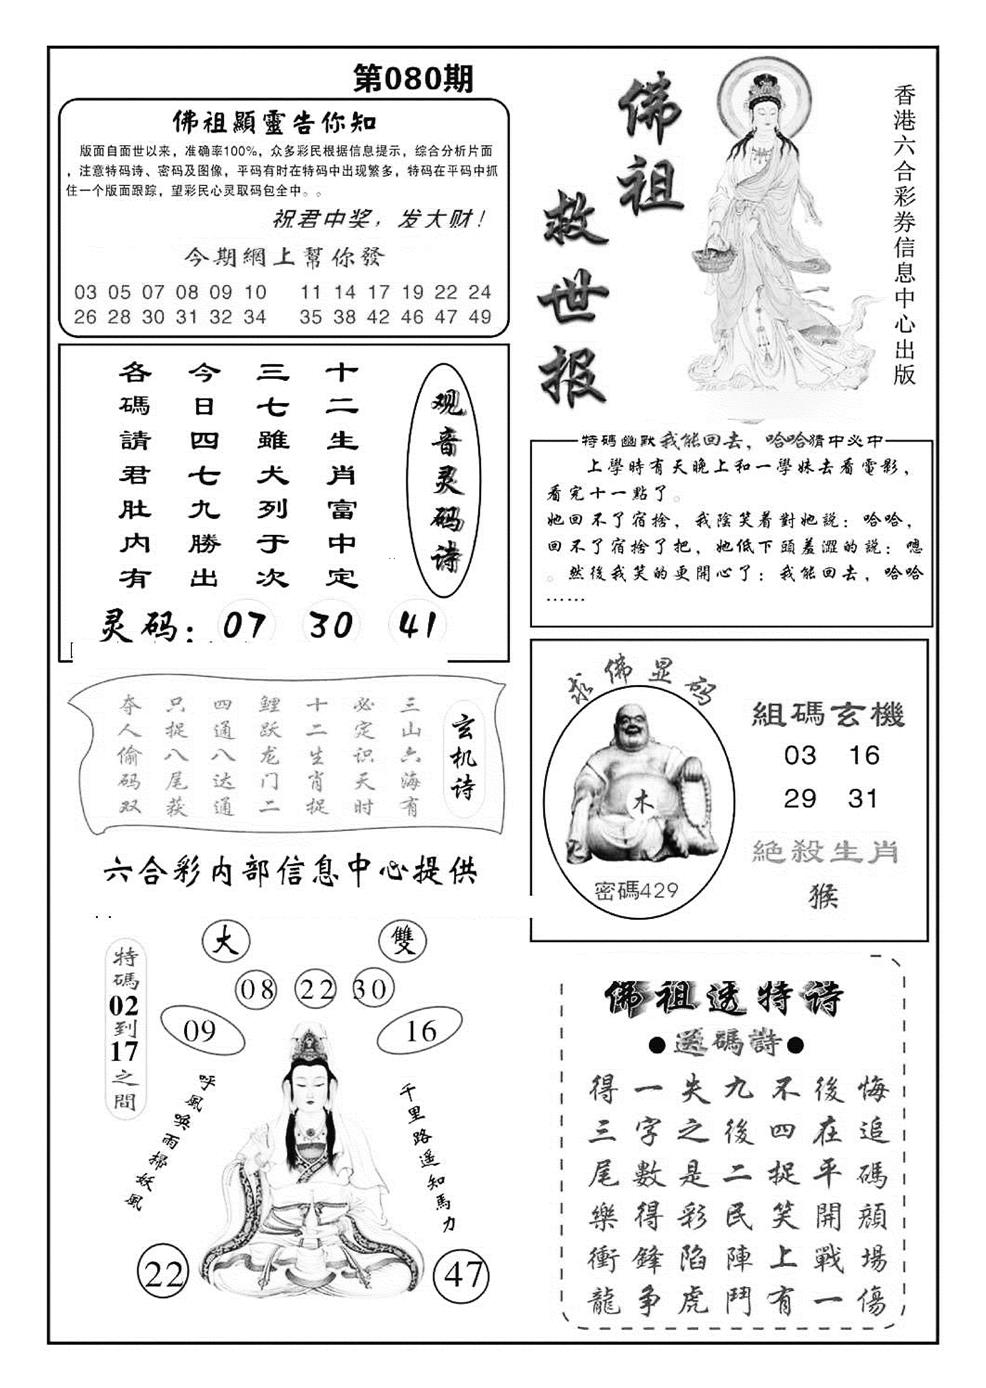 第080期
佛祖顯靈告你知
版面自面世以来，准确率100%，众多彩民根据信息提示，综合分析片面
，注意特码诗、密码及图像，平码有时在特码中出现繁多，特码在平码中抓
住一个版面跟踪，望彩民心灵取码包全中。。
祝君中奖，发大财！
今期網上幫你發
03 05 07 08 09 10 11 14 17 19 22 24
26 28 30 31 32 34 35 38 42 46 47 49
佛祖
救世报
香港六合彩券信息中心出版
观音灵码诗
十二生肖富中定
三七雖犬列于次
今日四七九勝出
各碼請君肚内有
灵码：07 30 41
特碼幽默我能回去，哈哈猜中必中
上學時有天晚上和一學妹去看電影，
看完十一點了。
她回不了宿捨，我陰笑着對她説：哈哈，
回不了宿捨了把，她低下頭羞澀的説：嗯
。然後我笑的更開心了：我能回去，哈哈
……
玄机诗
三山六海有
必定识天时
十二生肖捉
鲤跃龙门二
四通八达通
只捉八尾获
夺人偷码双
六合彩内部信息中心提供
求佛显码
木
密碼429
組碼玄機
03 16
29 31
絕殺生肖
猴
大 雙
08 22 30
09 16
特碼02到17之間
呼風唤雨掃妖風
千里路遥知馬力
22 47
佛祖透特诗
●送碼詩●
得一失九不後悔
三字之後四在追
尾數是二捉平碼
樂得彩民笑開顔
衝鋒陷陣上戰場
龍争虎鬥有一傷